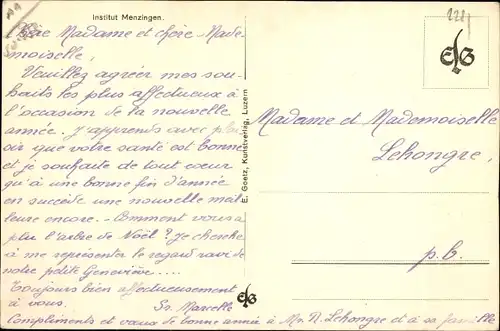 Institut Menzingen.
Chère Madame et chère Made-
moiselle,
Veuillez agréer mes sou-
haits les plus affectueux à
l'occasion de la nouvelle
année. J'apprends avec plai
sir que votre santé est bonne
et je souhaite de tout cœur
qu'à une bonne fin d'année
en succède une nouvelle meil
leure encore. - Comment vous a
plu l'arbre de Noël? Je cherche
à me représenter le regard ravi de
notre petite Geneviève.....
Toujours bien affectueusement
à vous. Sr. Marcelle
Compliments et vœux de bonne année à Mr. N. Lehongre et à sa famille
E. Goetz, Kunstverlag, Luzern
EG
228
EG
Madame et Mademoiselle
Lehongre,
p.b.